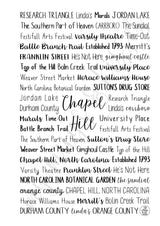 RESEARCH TRIANGLE Linda's Murals JORDAN LAKE
The Southern Part of Heaven CARRBORO The Sundial
Festifall Arts Festival Varsity theatre Time-Out
Battle Branch Trail Established 1793 Merritt's
FRANKLIN STREET He's Not Here gingham castle
Top of the Hill Bolin Creek Trail University Place
Weaver Street Market Horace Williams House
North Carolina Botanical Garden SUTTON'S DRUG STORE
Jordan Lake Chapel Research Triangle
CARRBORO Linda's timeless
Murals Time Out Hill University Place
Battle Branch Trail Festifall Arts Festival
The Southern Part of Heaven Sutton's Drug Store
Weaver Street Market Gingham Castle Top of the Hill
Chapel Hill, North Carolina Established 1793
Varsity Theatre Franklin Street He's Not Here
NORTH CAROLINA BOTANICAL GARDEN the sundial
orange county CHAPEL HILL, NORTH CAROLINA
Horace Williams House Merritt's Bolin Creek Trail
DURHAM COUNTY timeless ORANGE COUNTY